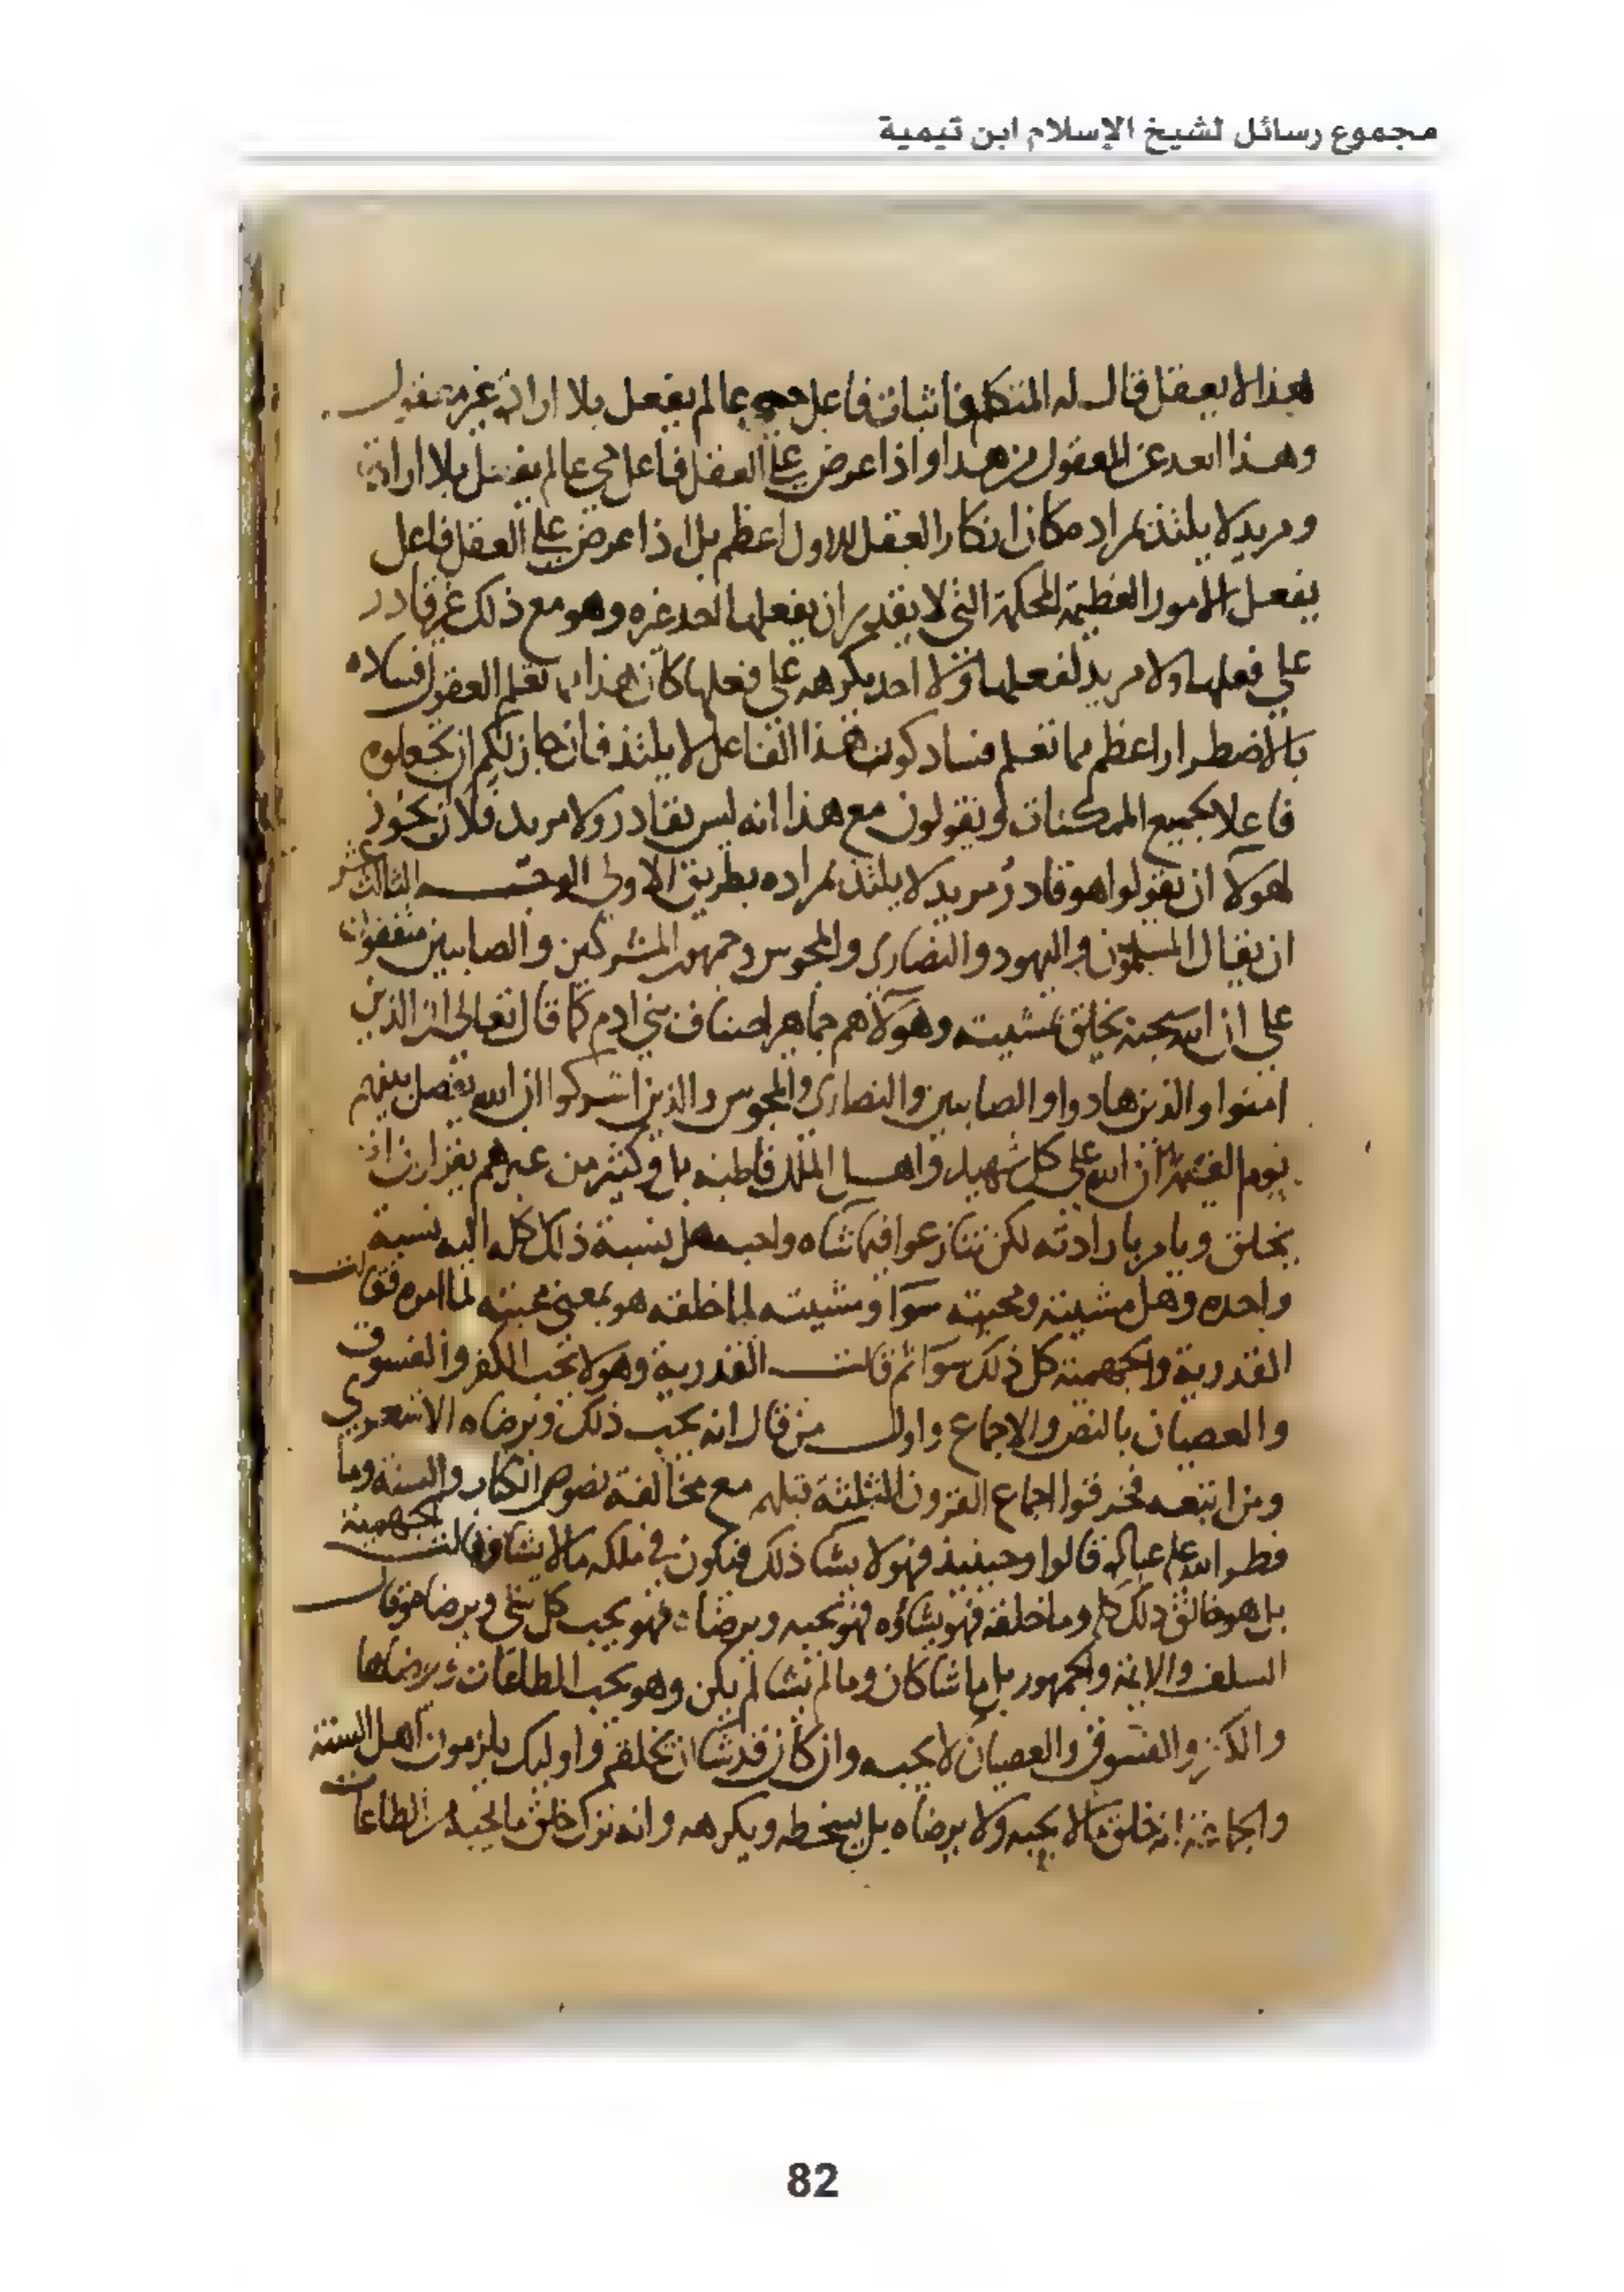 مجموع رسائل لشيخ الإسلام ابن تيمية
هذا لا يعقل قال له المتكلم فاثبات فاعل حي عالم يفعل بلا ارادة غير معقول
وهذا ابعد عن المعقول من هذا واذا عرض على العقل فاعل حي عالم يفعل بلا ارادة
ومريد لا يلتذ بمراده كان انكار العقل للاول اعظم بل اذا عرض على العقل فاعل
يفعل الامور العظيمة المحكمة التي لا يقدر ان يفعلها احد غيره وهو مع ذلك غير قادر
على فعلها ولا مريد لفعلها ولا احد يكرهه على فعلها كان هذا مما تعلم العقول فساده
بالاضطرار اعظم مما تعلم فساد كون هذا الفاعل لا يلتذ فان جاز لكم ان تجعلوه
فاعلا لجميع الممكنات وتقولون مع هذا انه ليس بقادر ولا مريد فلان يجوز
لهولا ان يقولوا هو قادر مريد لا يلتذ بمراده بطريق الاولى الوجه الثالث عشر
ان يقال المسلمون واليهود والنصارى والمجوس وجمهور المشركين والصابيين متفقون
على ان الله سبحنه يخلق بمشيته وهولآ هم جماهير اصناف بني ادم كما قال تعالى ان الذين
امنوا والذين هادوا والصابيين والنصارى والمجوس والذين اشركوا ان الله يفصل بينهم
يوم القيمة ان الله على كل شهيد واهل الملل قاطبة وكثير من غيرهم يقر ان الله
يخلق ويامر بارادته لكن تنازعوا فيما شاه واحبه هل نسبة ذلك كله اليه نسبة
واحده وهل مشيته ومحبته سوآ ومشيته لما خلقه هو بمعنى محبته لما امره فقالت
القدرية والجهمية كل ذلك سوآ ثم قالت القدرية وهو لا يحب الكفر والفسوق
والعصيان بالنص والاجماع واول من قال انه يحب ذلك ويرضاه الاشعري
ومن اتبعه فخرقوا اجماع القرون الثلثة قبلهم مع مخالفة نصوص الكتاب والسنة وما
فطر الله عليه عباده قالوا وحينيذ فهو لا يشا ذلك فيكون في ملكه ما لا يشا وقالت الجهمية
بل هو خالق ذلك كله وما خلقه فهو يشاؤه فهو يحبه ويرضاه فهو يحب كل شي ويرضاه وقال
السلف والايمة والجمهور بل ما شا كان وما لم يشا لم يكن وهو يحب الطاعات ويرضاها
والكفر والفسوق والعصيان لا يحبه وان كان قد شا ان يخلقه واوليك يلزمون اهل السنة
والجماعة انه خلق ما لا يحبه ولا يرضاه بل يسخطه ويكرهه وانه ترك خلق ما يحبه من الطاعات
82